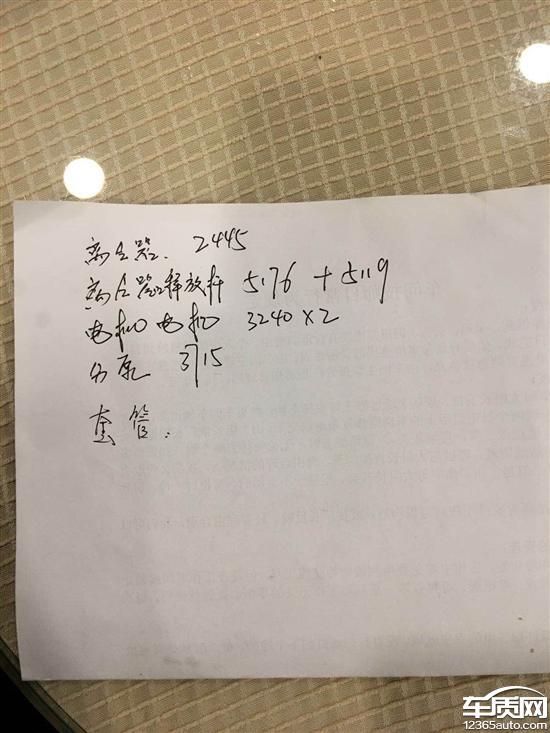 离合器. 2445
离合器释放杆 5176 + 5119
电机 电机 3240 x 2
分泵 3715
套管:
车质网
12365auto.com